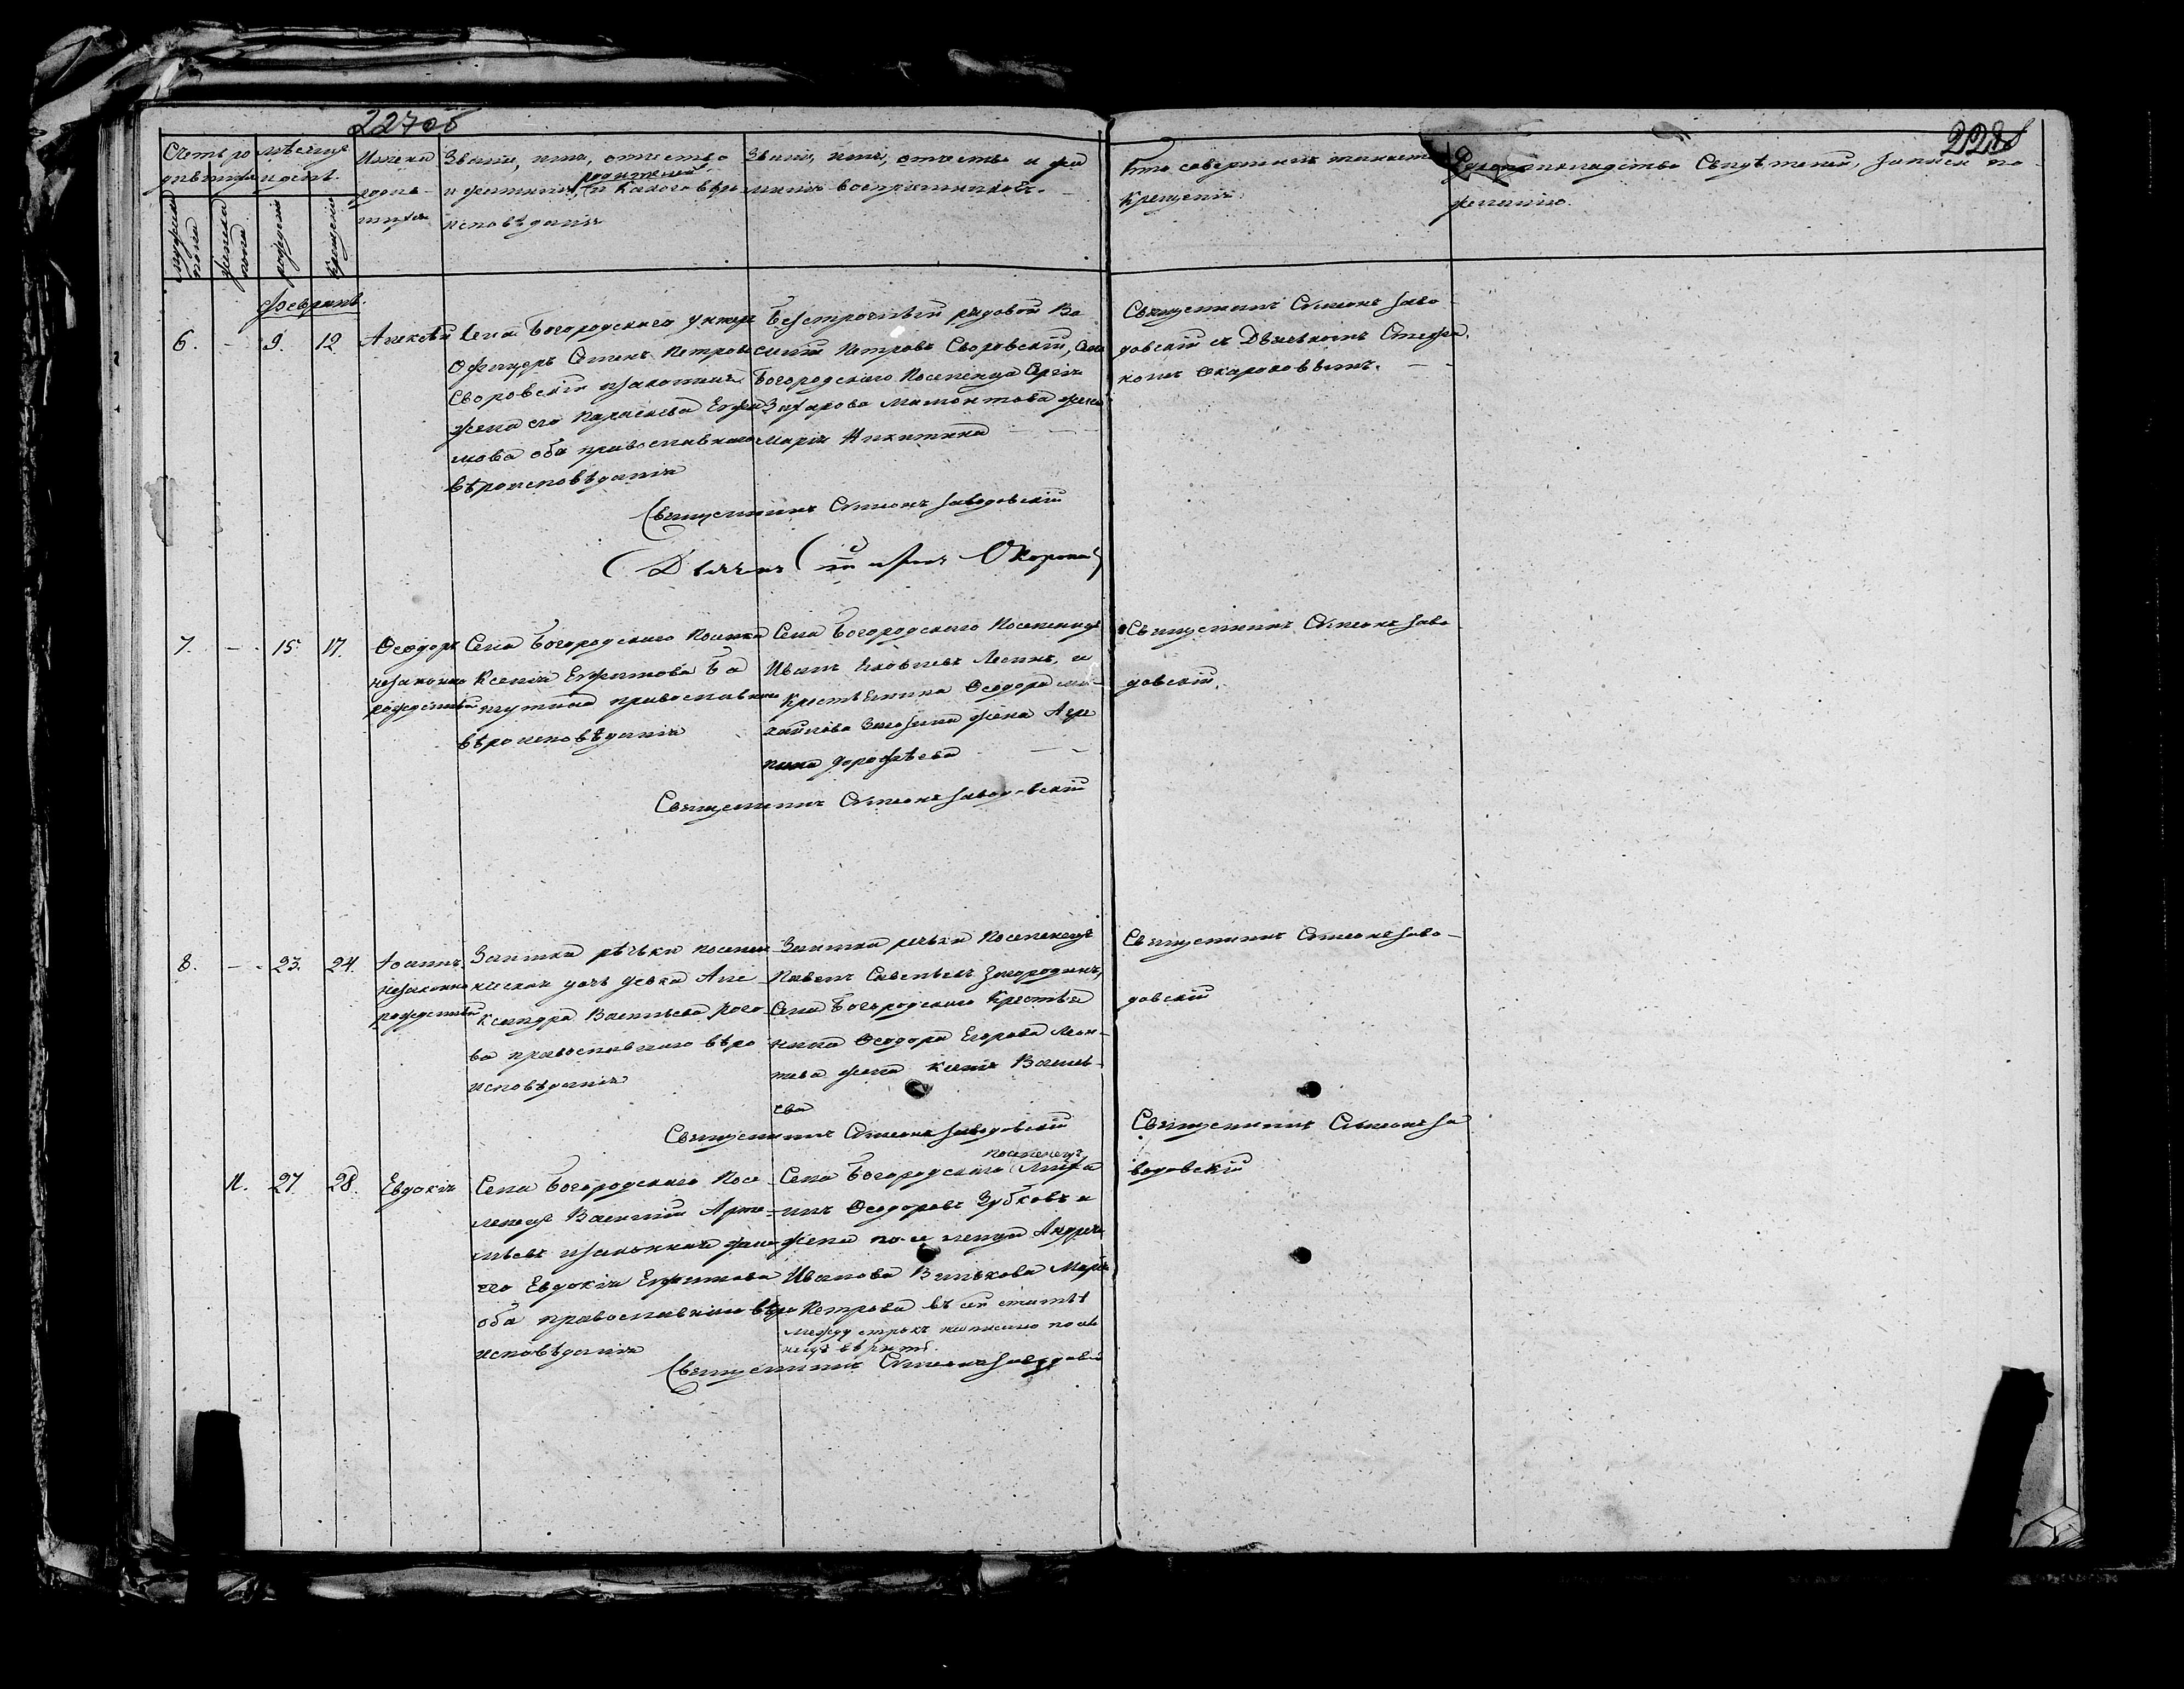 227об
228
Счетъ ро
дившихся
мѣсяцъ
и день.
мужеска
пола
женска
пола
рожденія
крещенія
Имена
родив-
шихся
Званіе, имя, отчество
родителей
и фамилія, и какого вѣро
исповѣданія
Званіе, имя, отчество и фа
милія воспріемниковъ.
Кто совершилъ таинство
крещенія.
Рукоприкладство Свидѣтелей, записи по
желанію.
Февраль.
6. - 9. 12
Алексѣй
Села Богородскаго унтеръ
Офицеръ Петровъ
Своровскій и законная
жена его Параскева Ефи
мова оба православнаго
вѣроисповѣданія
Безсрочный рядовой Ва
силій Петровъ Своровскій, Села
Богородскаго Поселенца
Захарова Мамонтова жена
Марія Никитина
Священникъ Симеонъ Заво
довскій съ Дьячкомъ Стефа
номъ Окороковымъ.
Священникъ Симеонъ Заводовскій
Дьячекъ Стефанъ Окороков
7. - 15. 17.
Феодоръ
незаконно
рожденный
Села Богородскаго
Ксенія Ефимова
православнаго
вѣроисповѣданія
Села Богородскаго Поселенецъ
Иванъ Яковлевъ Лесинъ, и
Крестьянина Феодора Ми-
хайлова жена Агре
пина Дорофѣева
Священникъ Симеонъ Заво
довскій.
Священникъ Симеонъ Заводовскій
8. - 23. 24.
Іоаннъ.
незаконно
рожденный
Заимка рѣчки поселен
ческая дочь дѣвка Але
ксандра Васильева Рого
ва православнаго вѣро
исповѣданія
Заимка речьки Поселенецъ
Павелъ Савельевъ Загородинъ,
Села Богородскаго Крестья
нина Феодора Егорова Леон-
тева жена Ксенія Василь-
ева
Священникъ Симеонъ Заво-
довскій
Священникъ Симеонъ Заводовскій
11. 27. 28.
Евдокія
Села Богородскаго Посе
ленецъ Василій Арте
мьевъ и законная жена
его Евдокія Ефимова
оба православнаго вѣро
исповѣданія
поселенецъ
Села Богородскаго Миха
илъ Феодоровъ Зубковъ и
жена поселенца Андрея
Иванова Вилкова Марія
Петрова въ сей статьѣ
между строкъ написано поселе
нецъ вѣрить.
Священникъ Симеонъ За
водовскій
Священникъ Симеонъ Заводовскій